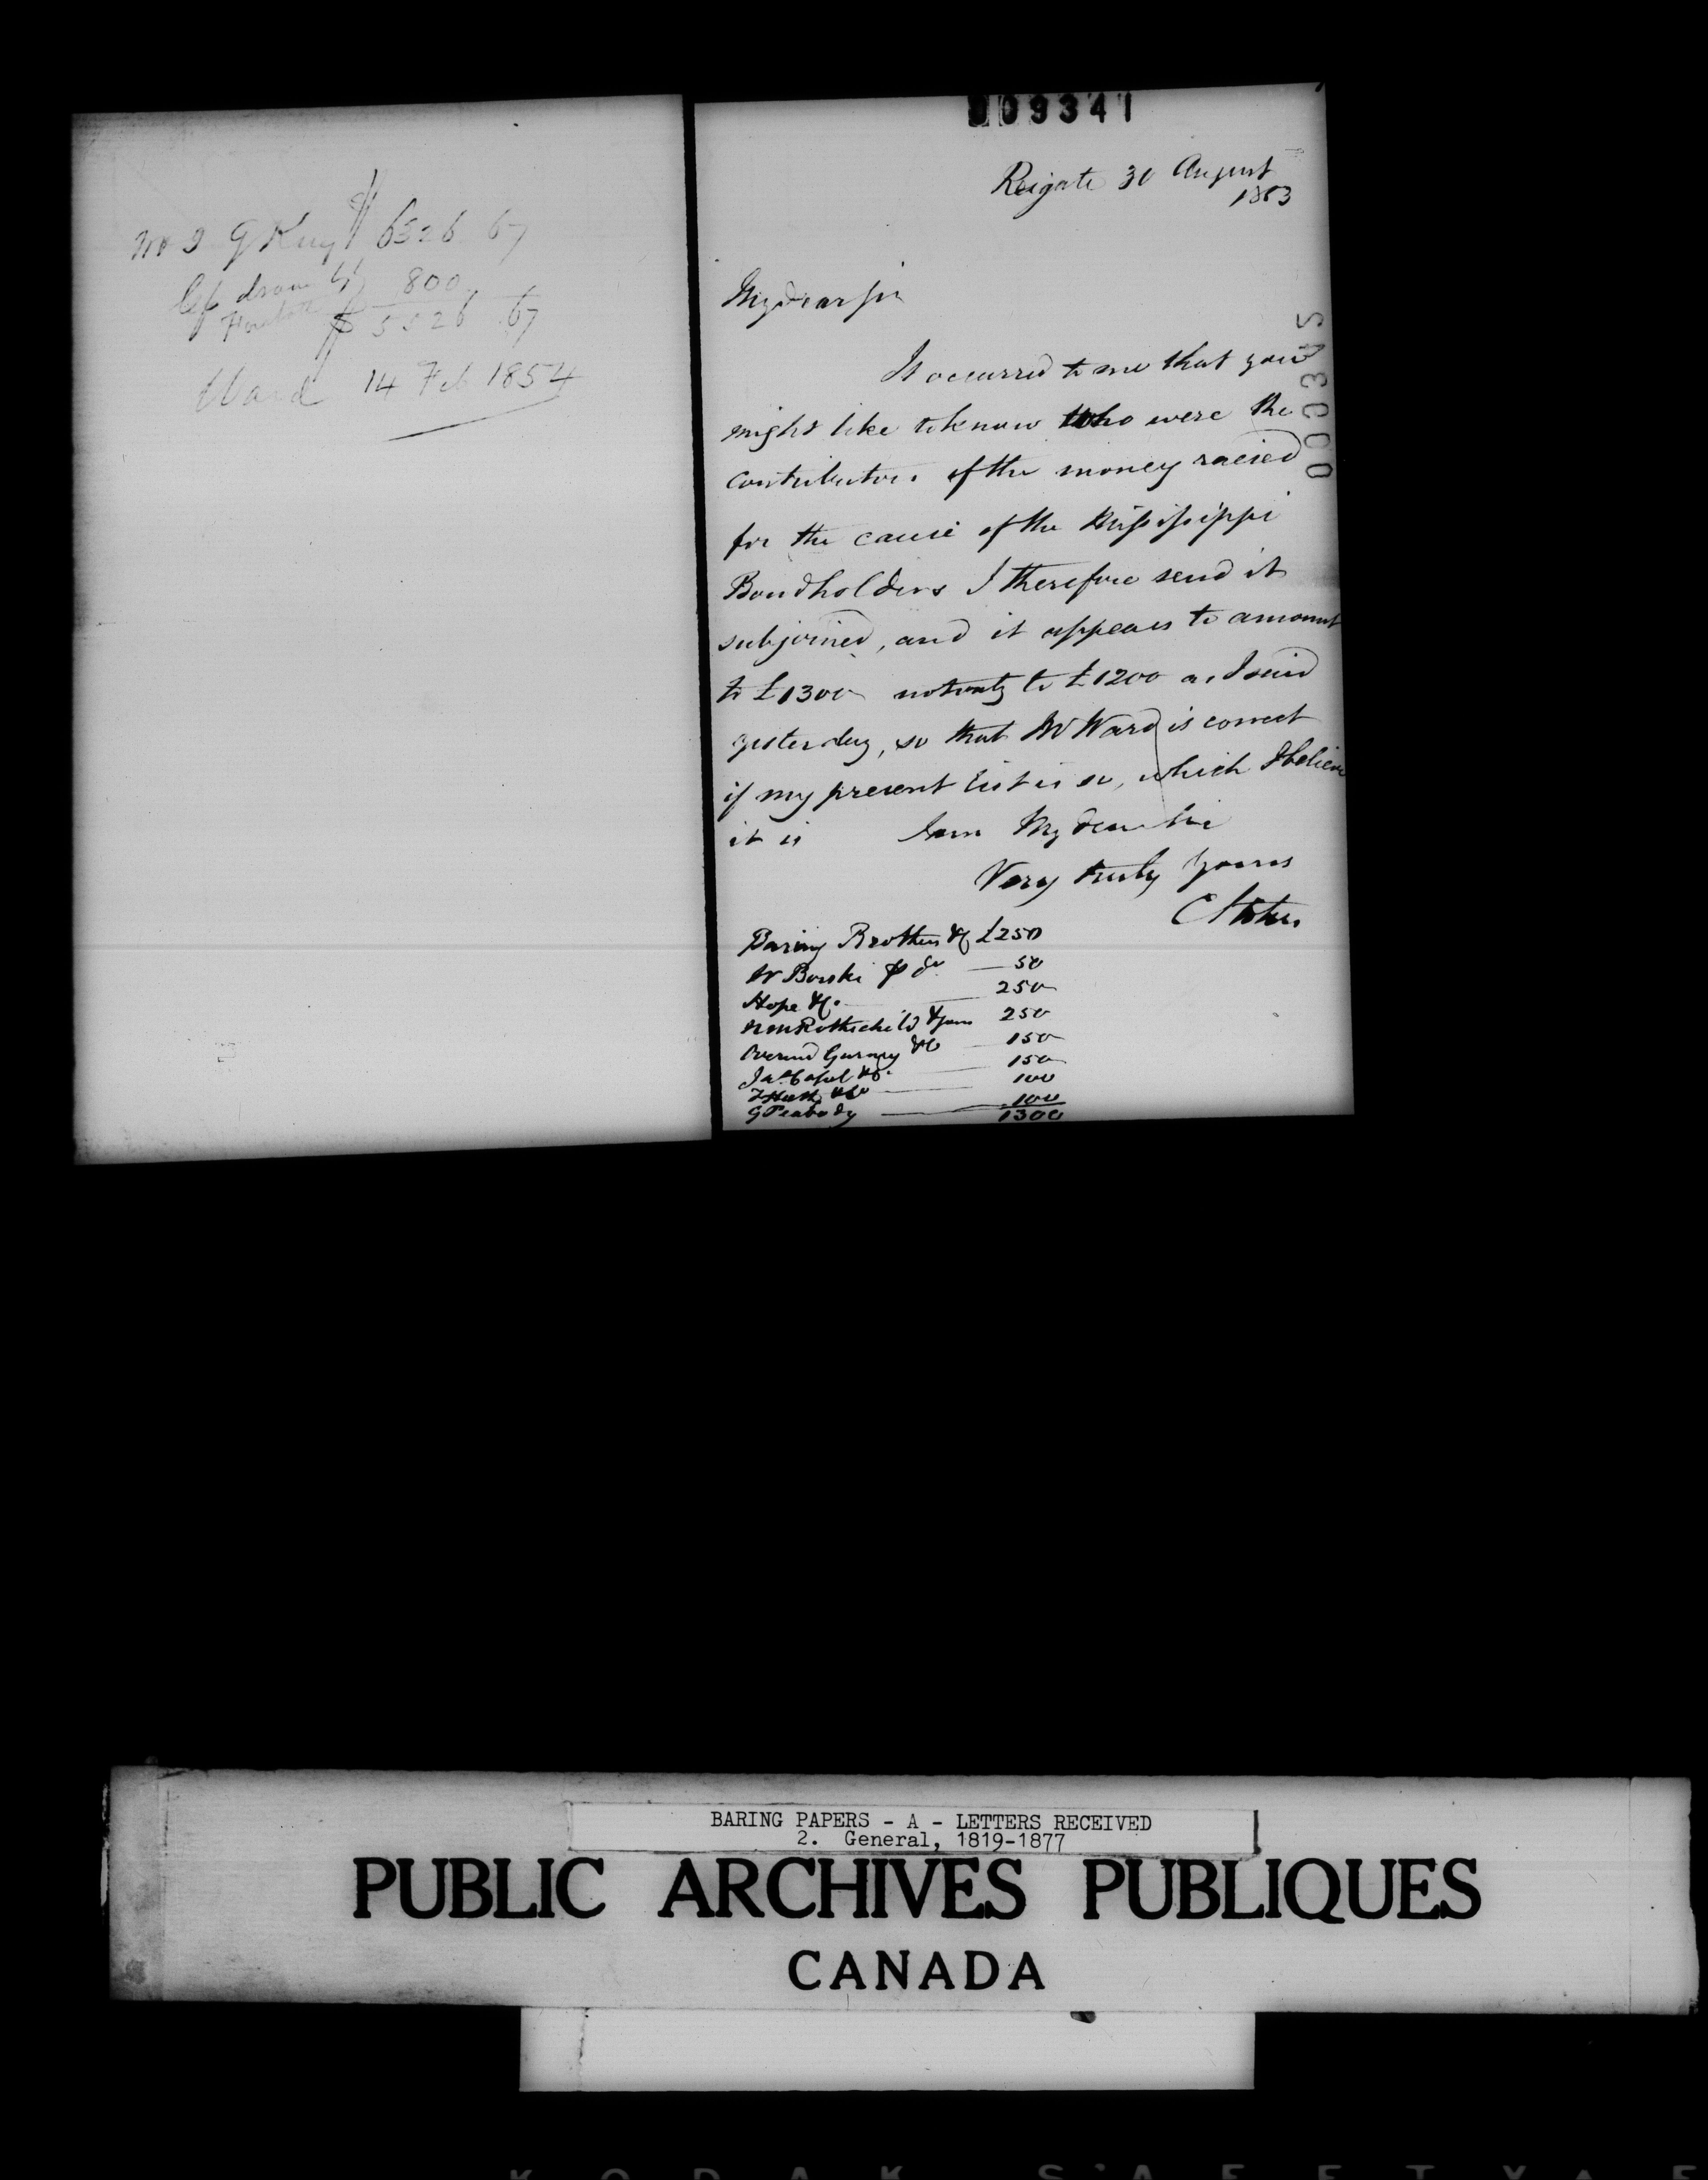 Mr J G King $ 6326 67
drawn 800
$ 5526 67
Ward 14 Feb 1854
009341
Reigate 30 August
1853
My dear Sir
It occurred to me that you
might like to know who were the
contributors of the money raised
for the cause of the Mississippi
Bondholders I therefore send it
subjoined, and it appears to amount
to £1300 not only to £1200 as I said
yesterday, so that Mr Ward is correct
if my present list is so, which I believe
it is I am My dear Sir
Very truly Yours
C Stokes
000345
Baring Brothers & Co £250
W Borski p do 50
Hope & Co. 250
N M Rothschild & Sons 250
Overend Gurney & Co 150
Jas Capel & Co. 150
F Huth & Co 100
G Peabody 100
1300
BARING PAPERS - A - LETTERS RECEIVED
2. General, 1819-1877
PUBLIC ARCHIVES PUBLIQUES
CANADA
KODAK SAFETY